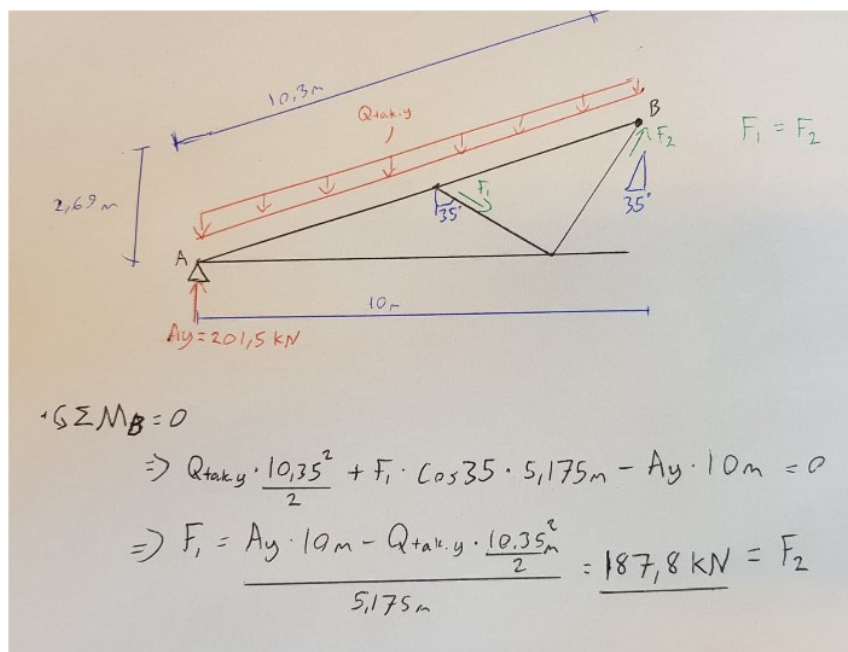 10,3m
Qtak.y
B
F₂
F₁ = F₂
2,69 m
F₁
35°
35°
A
10m
Ay=201,5 kN
ΣM_B=0
=> Qtak.y · 10,35²/2 + F₁ · Cos35 · 5,175m - Ay · 10m = 0
=> F₁ = Ay · 10m - Qtak.y · 10.35²m/2 / 5,175m = 187,8 kN = F₂